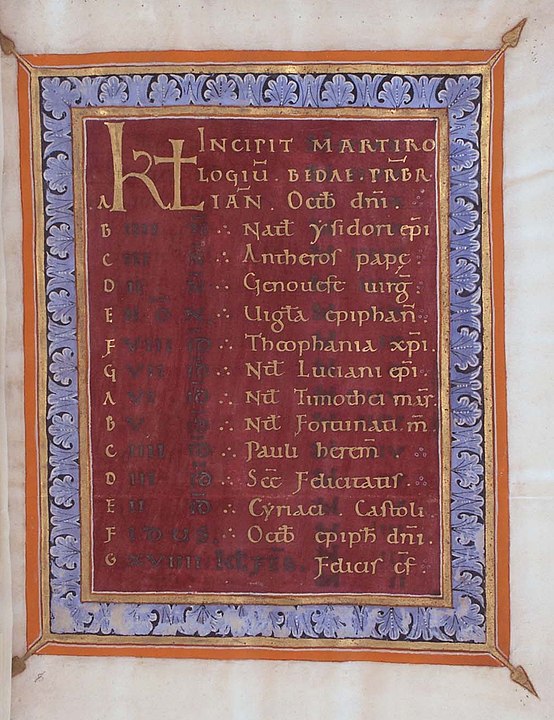 KL INCIPIT MARTIRO
LOGIŪ. BEDAE. PRB̄R.
A IAN̄. Octb̄ dn̄i.
B IIII N̄ ∴ Natł ysidori ep̄i
C III N̄ ∴ Antheros papę
D II N̄ ∴ Genouefe uirḡ
E N̄ ∴ Uigła epiphan̄.
F VIII ID ∴ Theophania xp̄i.
G VII ID ∴ Nł Luciani ep̄i.
A VI ID ∴ Nł Timothei mar̄.
B V ID ∴ Nł Fortunati m̄
C IIII ID ∴ Pauli herem̄
D III ID ∴ Scē Felicitatis.
E II ID ∴ Cyriaci. Castoli
F IDUS. ∴ Octb̄ epiph̄ dn̄i.
G XVIIII. kł. feb. Felicis c̄f.
8